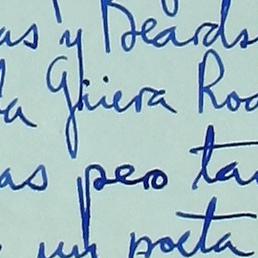 as y Beards
a Güera Rod
as pero tan
un poeta